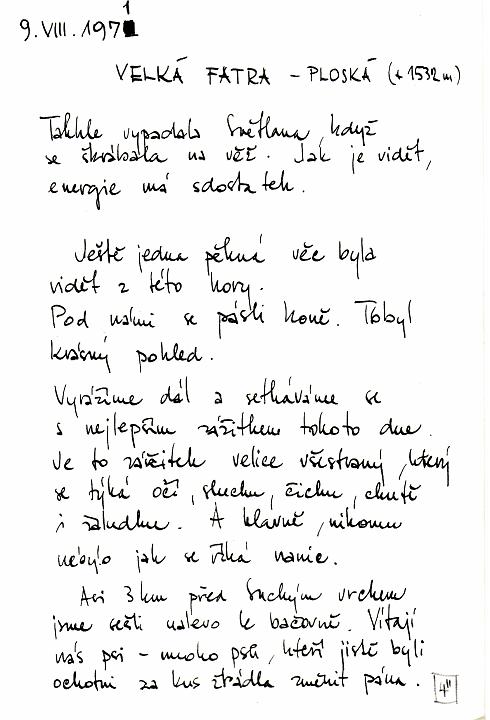 9. VIII. 1971
VELKÁ FATRA - PLOSKÁ (+ 1532 m)
Takhle vypadala Světlana, když
se škrábala na věž. Jak je vidět,
energie má sdostatek.
Ještě jedna pěkná věc byla
vidět z této hory.
Pod námi se pásli koně. To byl
krásný pohled.
Vyrážíme dál a setkáváme se
s nejlepším zážitkem tohoto dne.
Je to zážitek velice všestranný, který
se týká očí, sluchu, čichu, chutě
i žaludku. A hlavně, nikomu
nebylo jak se říká nanic.
Asi 3 km před Suchým vrchem
jsme sešli nalevo k bačovně. Vítají
nás psi - mnoho psů, kteří jistě byli
ochotni za kus žrádla změnit pána.
4"